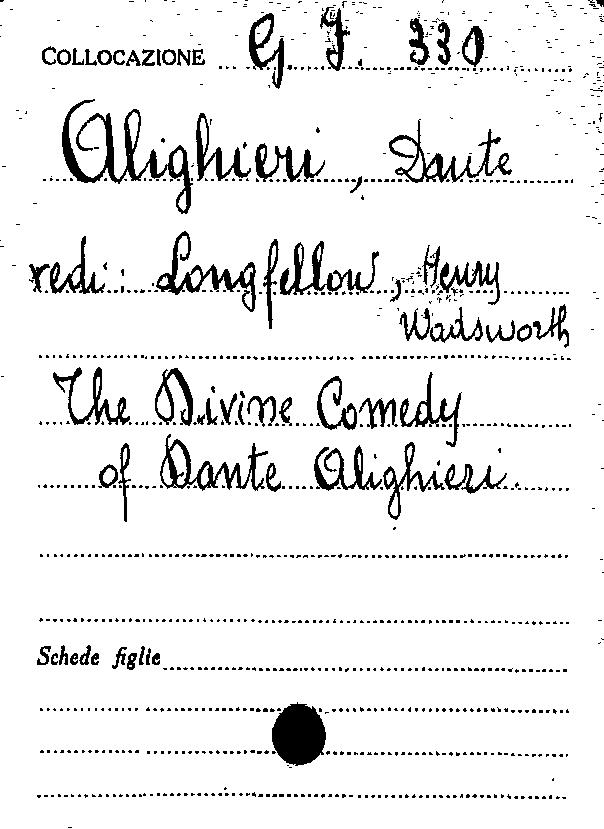 COLLOCAZIONE G. J. 330
Alighieri, Dante
vedi: Longfellow, Henry
Wadsworth
The Divine Comedy
of Dante Alighieri.
Schede figlie